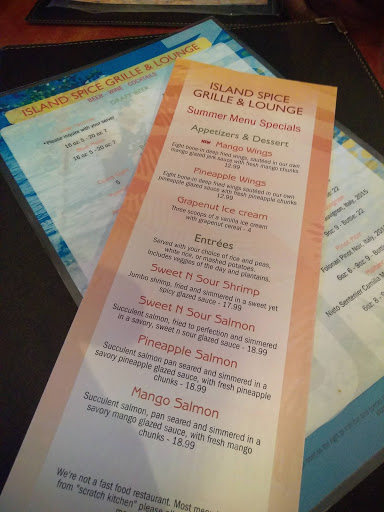 ISLAND SPICE GRILLE & LOUNGE
BEER WINE COCKTAILS
DRAFT BEER
*Please inquire with your server
16 oz. 5 - 20 oz. 7
16 oz. 5 - 20 oz. 7
5
ISLAND SPICE
GRILLE & LOUNGE
Summer Menu Specials
Appetizers & Dessert
NEW Mango Wings
Eight bone in deep fried wings, sautéed in our own
mango glazed jerk sauce with fresh mango chunks
12.99
Pineapple Wings
Eight bone in deep fried wings, sautéed in our own
pineapple glazed sauce with fresh pineapple chunks
12.99
Grapenut Ice cream
Three scoops of a vanilla ice cream
with grapenut cereal - 4
Entrées
Served with your choice of rice and peas,
white rice, or mashed potatoes.
Includes veggies of the day and plantains.
Sweet N Sour Shrimp
Jumbo shrimp, fried and simmered in a sweet yet
spicy glazed sauce - 17.99
Sweet N Sour Salmon
Succulent salmon, fried to perfection and simmered
in a savory, sweet n sour glazed sauce - 18.99
Pineapple Salmon
Succulent salmon pan seared and simmered in a
savory pineapple glazed sauce, with fresh pineapple
chunks - 18.99
Mango Salmon
Succulent salmon, pan seared and simmered in a
savory mango glazed sauce, with fresh mango
chunks - 18.99
We're not a fast food restaurant. Most menu
from "scratch kitchen" please
Italy, 2015
9oz: 9 - Bottle: 22
Pinot Noir
Italy, 2015
6oz: 6 - 9oz: 9 - Bottle: 22
Nieto Senetiner Camila
6oz: 6 - 9oz: 9